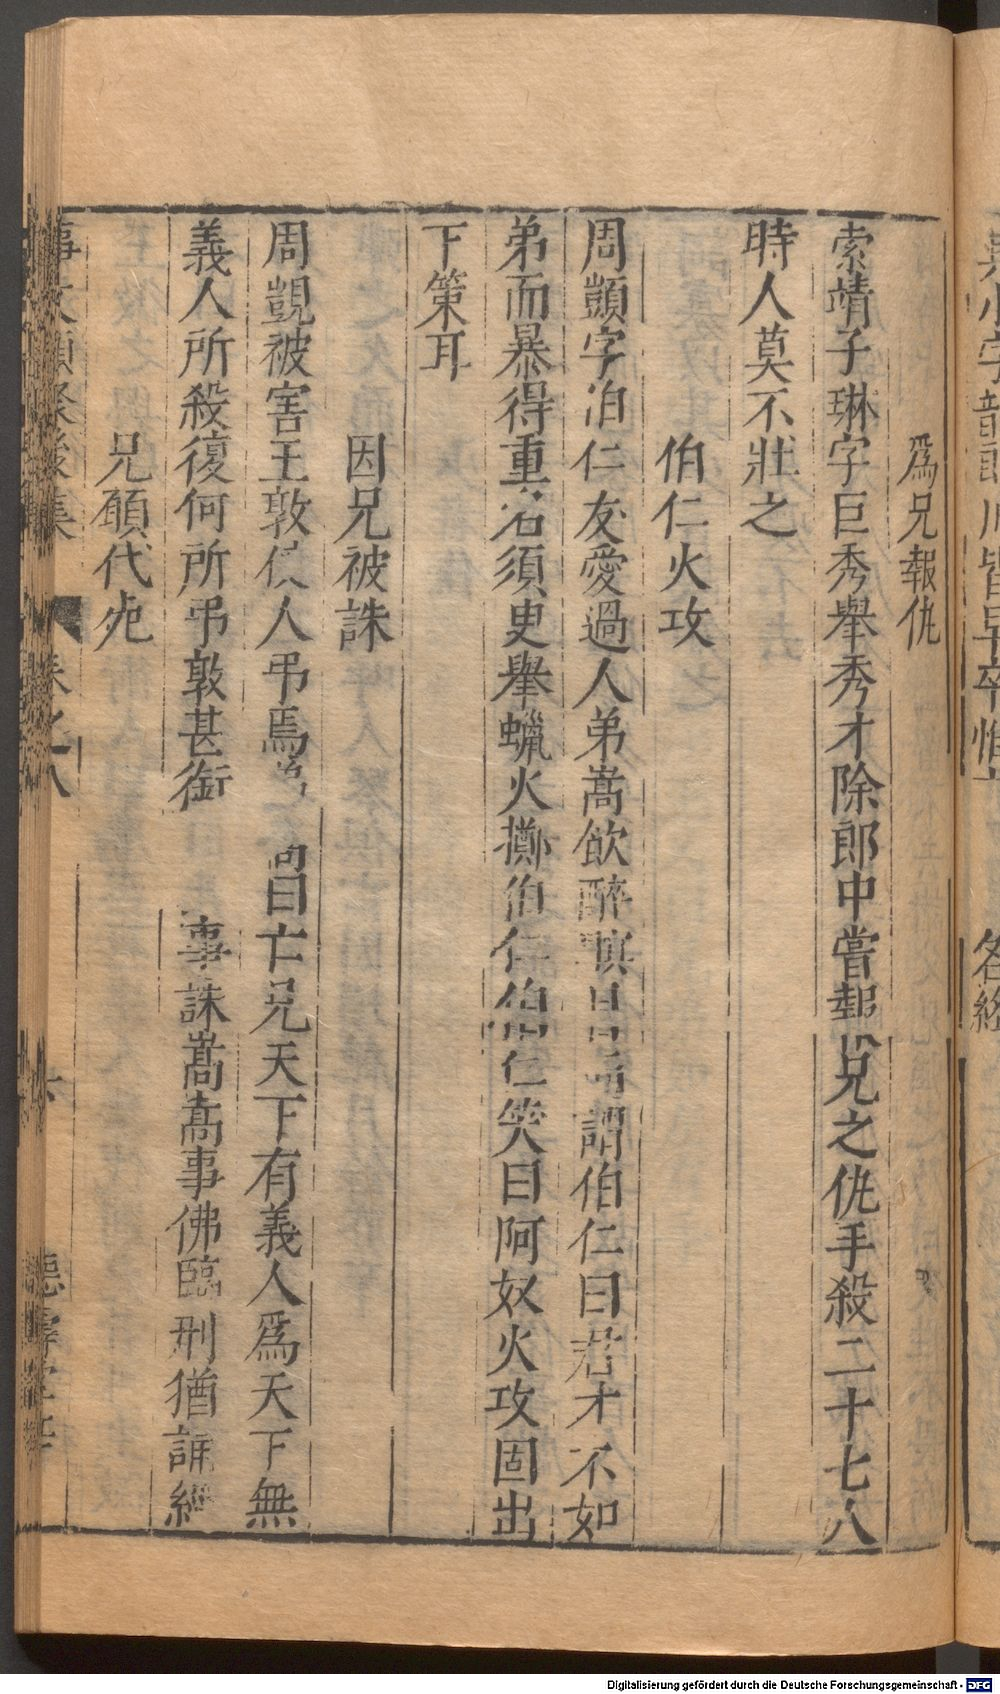 爲兄報仇
索靖子琳字巨秀舉秀才除郎中嘗報兄之仇手殺二十七八
時人莫不壯之
伯仁火攻
周顗字伯仁友愛過人弟嵩飲醉瞋目謂伯仁曰君才不如
弟而暴得重名須臾舉蠟火擲伯仁伯仁笑曰阿奴火攻固出
下策耳
因兄被誅
周顗被害王敦使人弔焉曰亡兄天下有義人爲天下無
義人所殺復何所弔敦甚銜事誅嵩嵩事佛臨刑猶誦經
兄願代死
事文類聚後集 卷之八
德壽堂
Digitalisierung gefördert durch die Deutsche Forschungsgemeinschaft - DFG